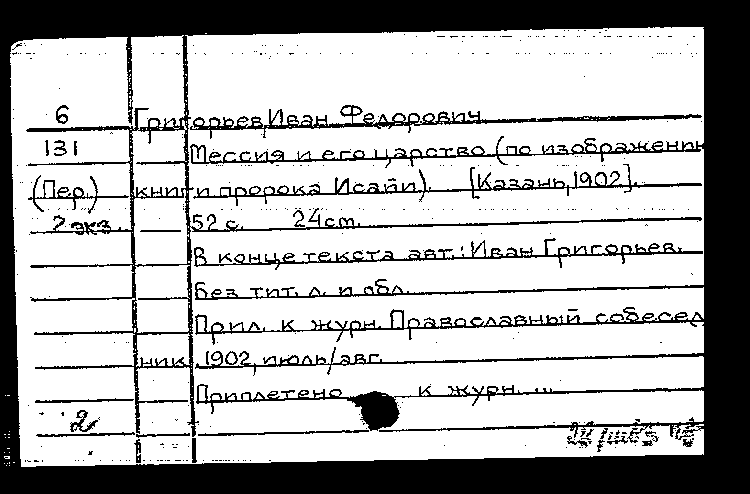 6 Григорьев, Иван Федорович
131 Мессия и его царство (по изображению
(Пер.) книги пророка Исайи). [Казань, 1902].
2 экз. 52 с. 24 см.
В конце текста авт.: Иван Григорьев.
Без тит. л. и обл.
Прил. к журн. Православный собесед
ник, 1902, июль/авг.
Приплетено к журн. ...
2